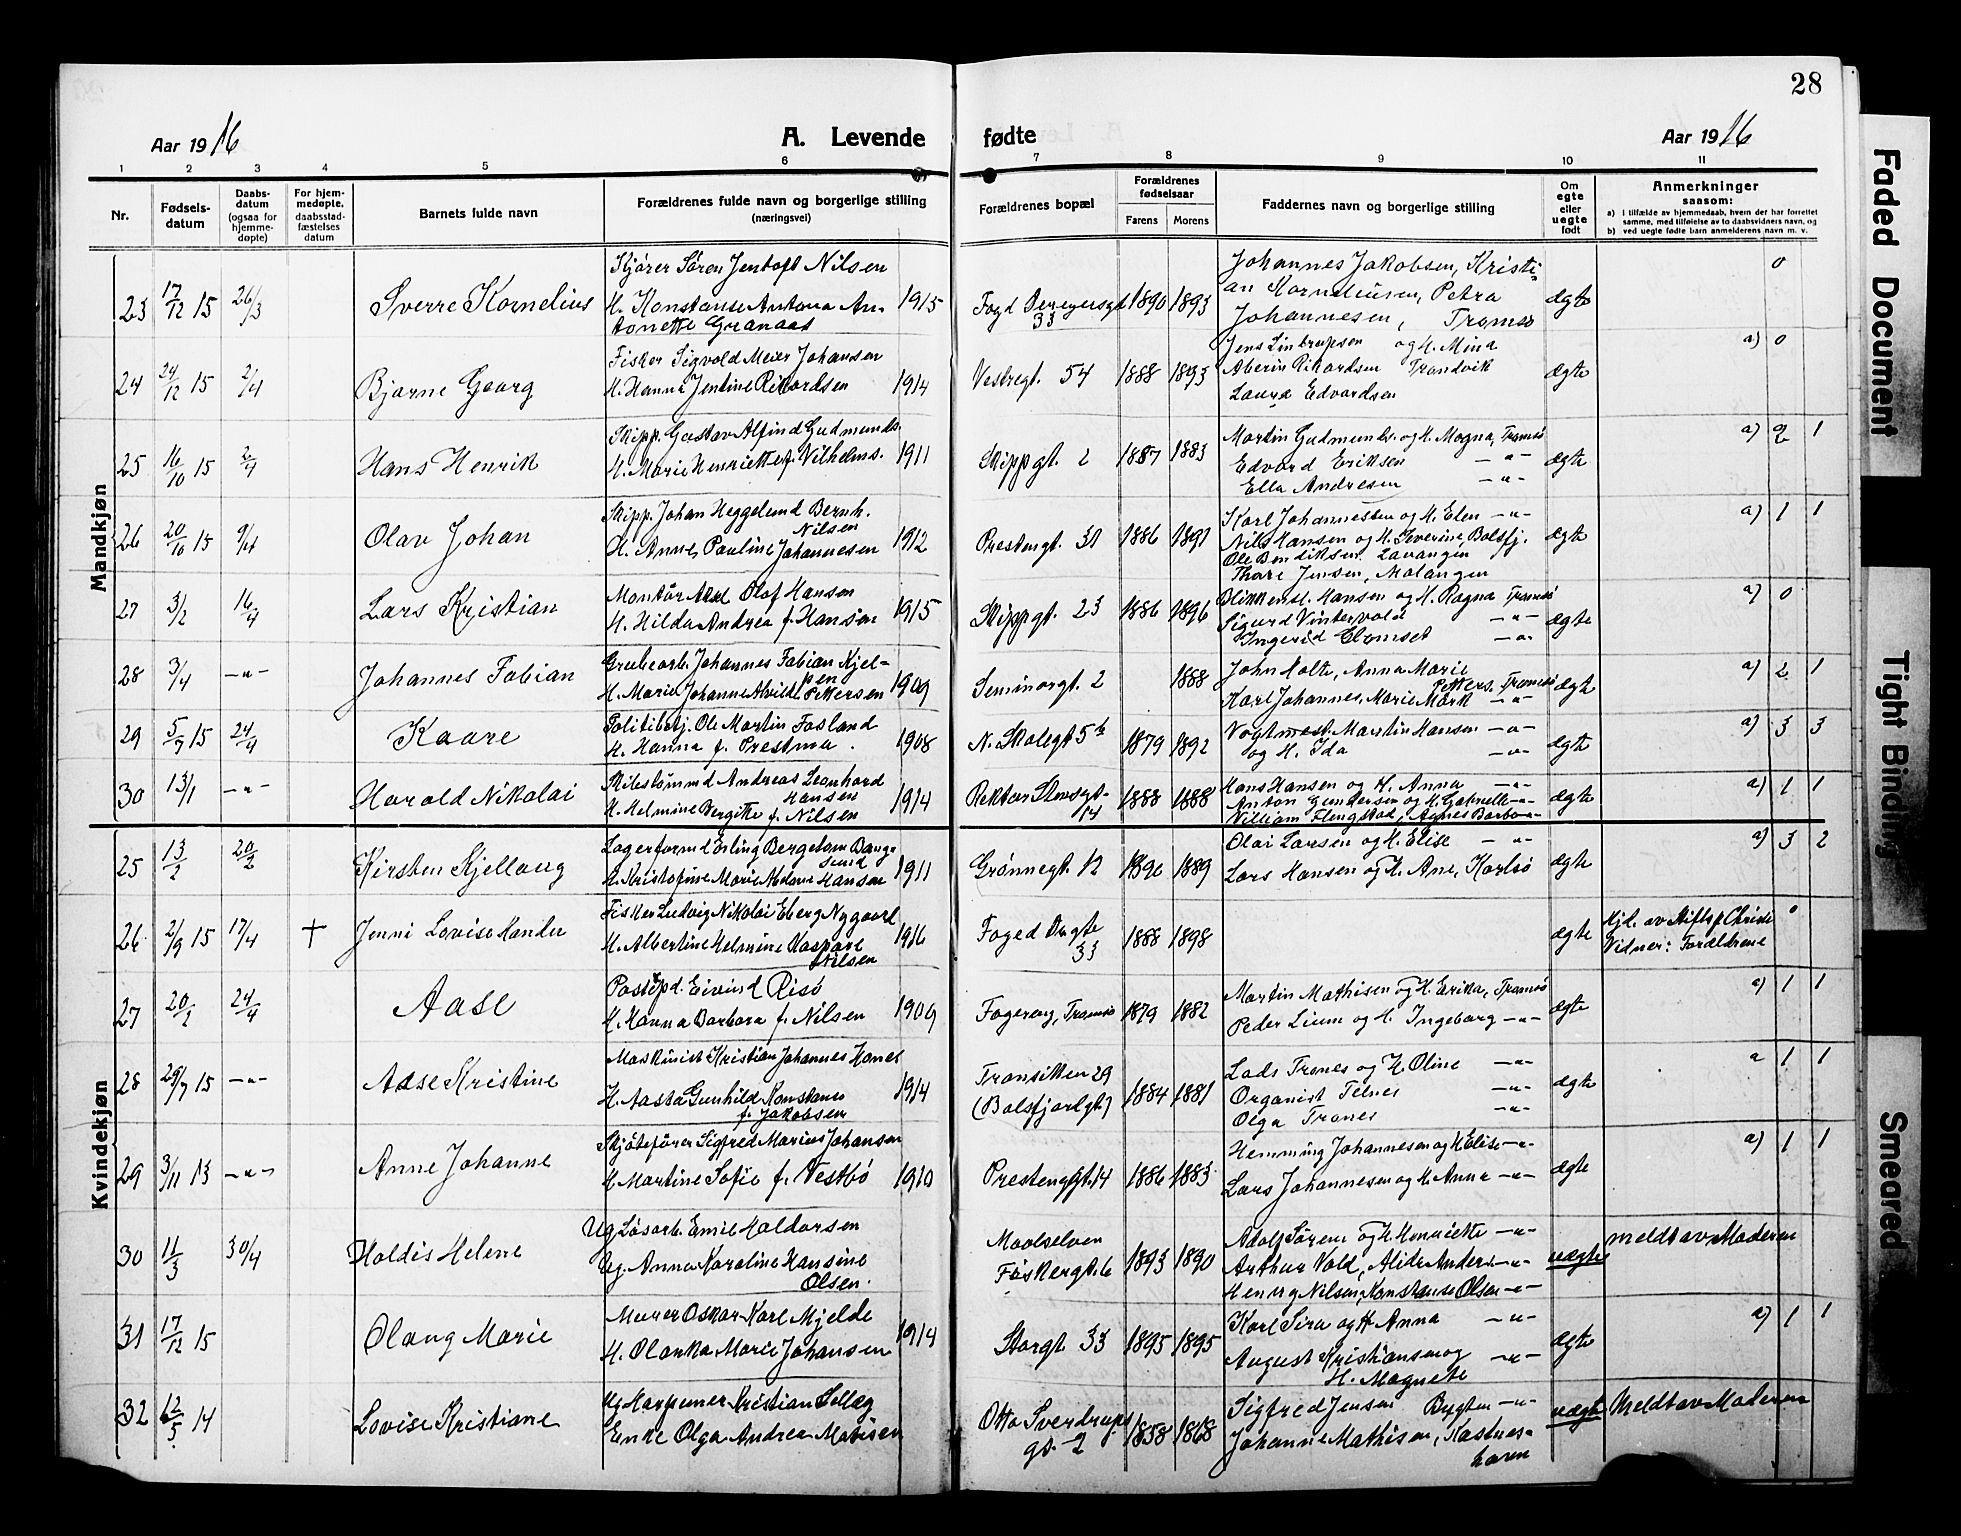 28
Aar 1916 A. Levende fødte Aar 1916
1 2 3 4 5 6 7 8 9 10 11
Nr.
Fødsels-
datum
Daabs-
datum
(ogsaa for
hjemme-
døpte)
For hjem-
medøpte.
daabsstad-
fæstelses
datum
Barnets fulde navn
Forældrenes fulde navn og borgerlige stilling
(næringsvei)
Forældrenes bopæl
Forældrenes
fødselsaar
Farens Morens
Faddernes navn og borgerlige stilling
Om
egte
eller
uegte
født
Anmerkninger
saasom:
a) i tilfælde av hjemmedaab, hvem det har forrettet
samme, med tilføielse av to daabsvidners navn, og
b) ved uegte fødte barn anmelderens navn m. v.
Mandkjøn
23 17/12 15 26/3 Sverre Kornelius
Kjører Søren Jentoft Nilsen
H. Konstanse Antona An-
tonette Granaas 1915
33 1890 1893
Johannes Jakobsen, Kristi-
an Korneliusen, Petra
Johannesen, Tromsø
ægte 0
24 24/12 15 2/4 Bjarne Georg
Fisker Sigvold Meier Johansen
H. Hanna Jentine Rikardsen 1914
Vestregt. 54 1888 1893
og H. Mina
Rikardsen Trondvik
Laura Edvardsen
ægte a) 0
25 16/10 15 2/4 Hans Henrik
Skipp. Gustav Alfind Gudmunds.
H. Marie Henriette f. Vilhelms. 1911
Skippgt. 2 1887 1883
Martin Gudmunds. og H. Magna, Tromsø
Edvard Eriksen —"—
Ella Andresen —"—
ægte a) 2 1
26 20/10 15 9/4 Olav Johan
Skipp. Johan Heggelund Bernh.
Nilsen
H. Anne Pauline Johannesen 1912
Prestengt. 31 1886 1891
Karl Johannessen og H. Elen —"—
Nils Hansen og H. Severine, Balsfj.
Ole Bendiksen Lavangen
Thore Jensen, Malangen
ægte a) 1 1
27 3/2 16/4 Lars Kristian
Montør Axel Olof Hansen
H. Hilda Andrea f. Hansen 1915
Skippgt. 23 1886 1896
Blikkensl. Hansen og H. Ragna Tromsø
Sigurd Vintervold —"—
Ingerid —"—
ægte a) 0
28 3/4 —"— Johannes Fabian
Grubearb. Johannes Fabian Kjel-
sen
H. Marie Johanne Alvilde Pettersen 1909
Seminargt. 2 1888
John Holte, Anna Marie
Petters. Tromsø
Karl Johannes, Marie Mørk —"—
ægte a) 2 1
29 5/9 15 24/4 Kaare
Politibetj. Ole Martin Fosland
H. Hanna f. Prestmo 1908
N. Skolegt 5b 1879 1892
Vogtmest. Martin Hansen —"—
og H. Ida —"—
ægte a) 3 3
30 13/1 —"— Harald Nikolai
Andreas Leonhard
Hansen
H. Helmine Bergitte f. Nilsen 1914
14 1888 1888
Hans Hansen og H. Anna —"—
Anton Gundersen og H. Gabrielle —"—
William Flengstad, Agnes Barbo —"—
ægte a) 1 1
Kvindekjøn
25 13/2 20/2 Kirsten Kjellaug
Lagerformd Erling Bergetom Bang-
sund
H. Kristofine Marie Hansen 1911
Grønnegt. 12 1890 1889
Olai Larsen og H. Elise —"—
Lars Hansen og H. Ane, Karlsø
ægte a) 3 2
26 2/9 15 17/4 + Jenni Lovise Kander
Fisker Ludvig Nikolai Eberg Nygaard
H. Albertine Helmine Kaspara
Nilsen 1916
Foged Drgte
33 1888 1898
ægte
Hjd. av Stiftsp Christie
Vidner: Forældrene 0
27 20/2 24/4 Aase
Postexpd. Eivind Risø
H. Hanna Barbara f. Nilsen 1909
Fogereng, Tromsø 1879 1882
Martin Mathisen og H. Erika, Tromsø
Peder Lium og H. Ingeborg —"—
ægte a) 1 1
28 29/7 15 —"— Aase Kristine
Maskinist Kristian Johannes Hanes
H. Aasta Gunhild Konstanse
f. Jakobsen 1914
Transitten 29
(Balsfjordgt) 1884 1881
Lads Tranes og H Oline —"—
Organist Telnes —"—
Olga Tranes —"—
ægte a 1 1
29 3/11 13 —"— Anne Johanne
Skjøtefører Sigfred Marius Johansen
H. Martine Sofie f. Vestbø 1910
Prestenggt. 14 1886 1883
Hemming Johannesen og H Elise —"—
Lars Johannesen og H. Anna —"—
ægte a) 1 1
30 11/3 30/4 Haldis Helene
Ug. Løsarb. Emil Haldorsen
Ug. Anna Karoline Hansine
Olsen
Maalselven
Fiskergt. 6 1893 1890
Adolf Sørens og H. Henriette —"—
Arthur Vold, Alida Anders —"—
Henry Nilsen, Konstanse Olsen —"—
uægte meldt av Moderen
31 17/12 15 Olaug Marie
Murer Oskar Karl Mjelde
H. Olanka Marie Johansen 1914
Storgt 33 1895 1895
Karl Sira og H Anna —"—
August Kristiansen og —"—
H. Magnete
ægte a) 1 1
32 12/5 14 Lovise Kristiane
Ug. Harpuner Kristian Sellæg
Enke Olga Andrea Matisen
Otto Sverdrups
gt. 2 1858 1868
Sigfred Jensen Bygten —"—
Johanne Mathisen, Kastnes-
havn
uægte Meldt av Moderen
Faded Document
Tight Binding
Smeared